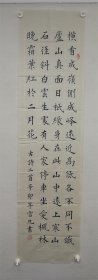 橫看成嶺側成峰遠近高低各不同不識
廬山真面目祇緣身在此山中遠上寒山
石徑斜白雲生處有人家停車坐愛楓林
晚霜葉紅於二月花 古詩二首辛卯年書